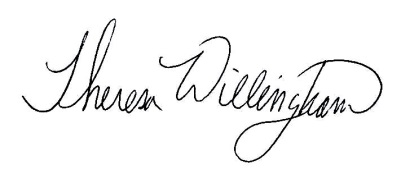 Theresa Willingham